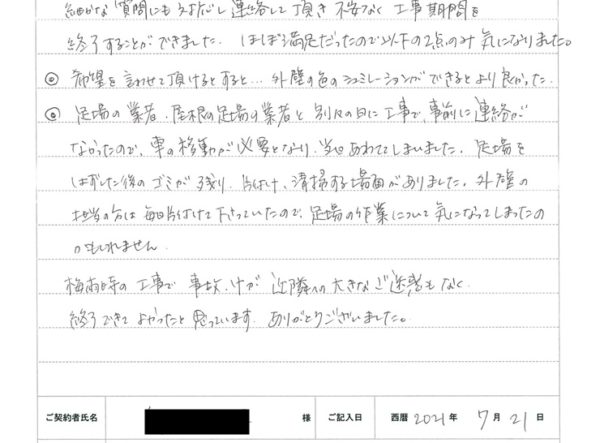 細かな質問にもうかがい連絡して頂き不安なく工事期間を
終了することができました。ほぼ満足だったので以下の2点のみ気になりました。
◎ 希望を言わせて頂けるとすると…外壁の色のシュミレーションができるとより良かった。
◎ 足場の業者、屋根の足場の業者と別々の日に工事で、事前に連絡が
なかったので、車の移動が必要となり、当日あわててしまいました。足場を
はずした後のゴミが残り、片付け、清掃する場面がありました。外壁の
担当の方は毎日片付けて下さっていたので、足場の作業について気になってしまったの
かもしれません。
梅雨時の工事で事故、けが 近隣への大きなご迷惑もなく
終了できてよかったと思っています。ありがとうございました。
ご契約者氏名 様 ご記入日 西暦 2021 年 7 月 21 日